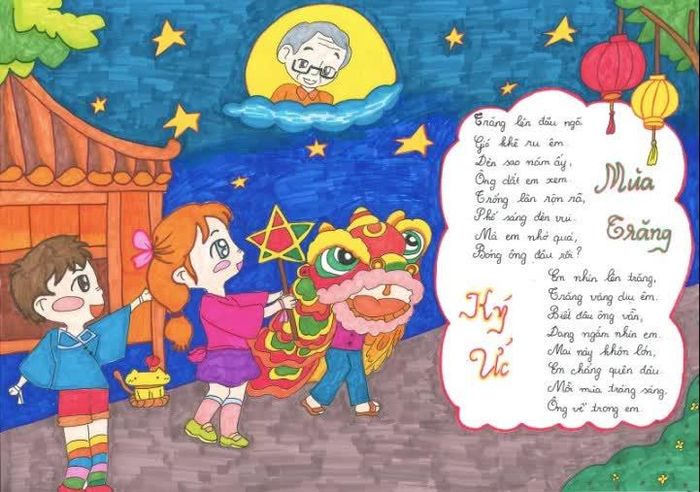 Trăng lên đầu ngõ
Gió khẽ ru êm.
Đèn sao năm ấy,
Ông dắt em xem.
Trống lân rộn rã,
Phố sáng đèn vui.
Mà em nhớ quá,
Bóng ông đâu rồi?
Mùa
Trăng
Ký
Ức
Em nhìn lên trăng,
Trăng vàng dịu êm.
Biết đâu ông vẫn,
Đang ngắm nhìn em.
Mai này khôn lớn,
Em chẳng quên đâu.
Mỗi mùa trăng sáng,
Ông về trong em.